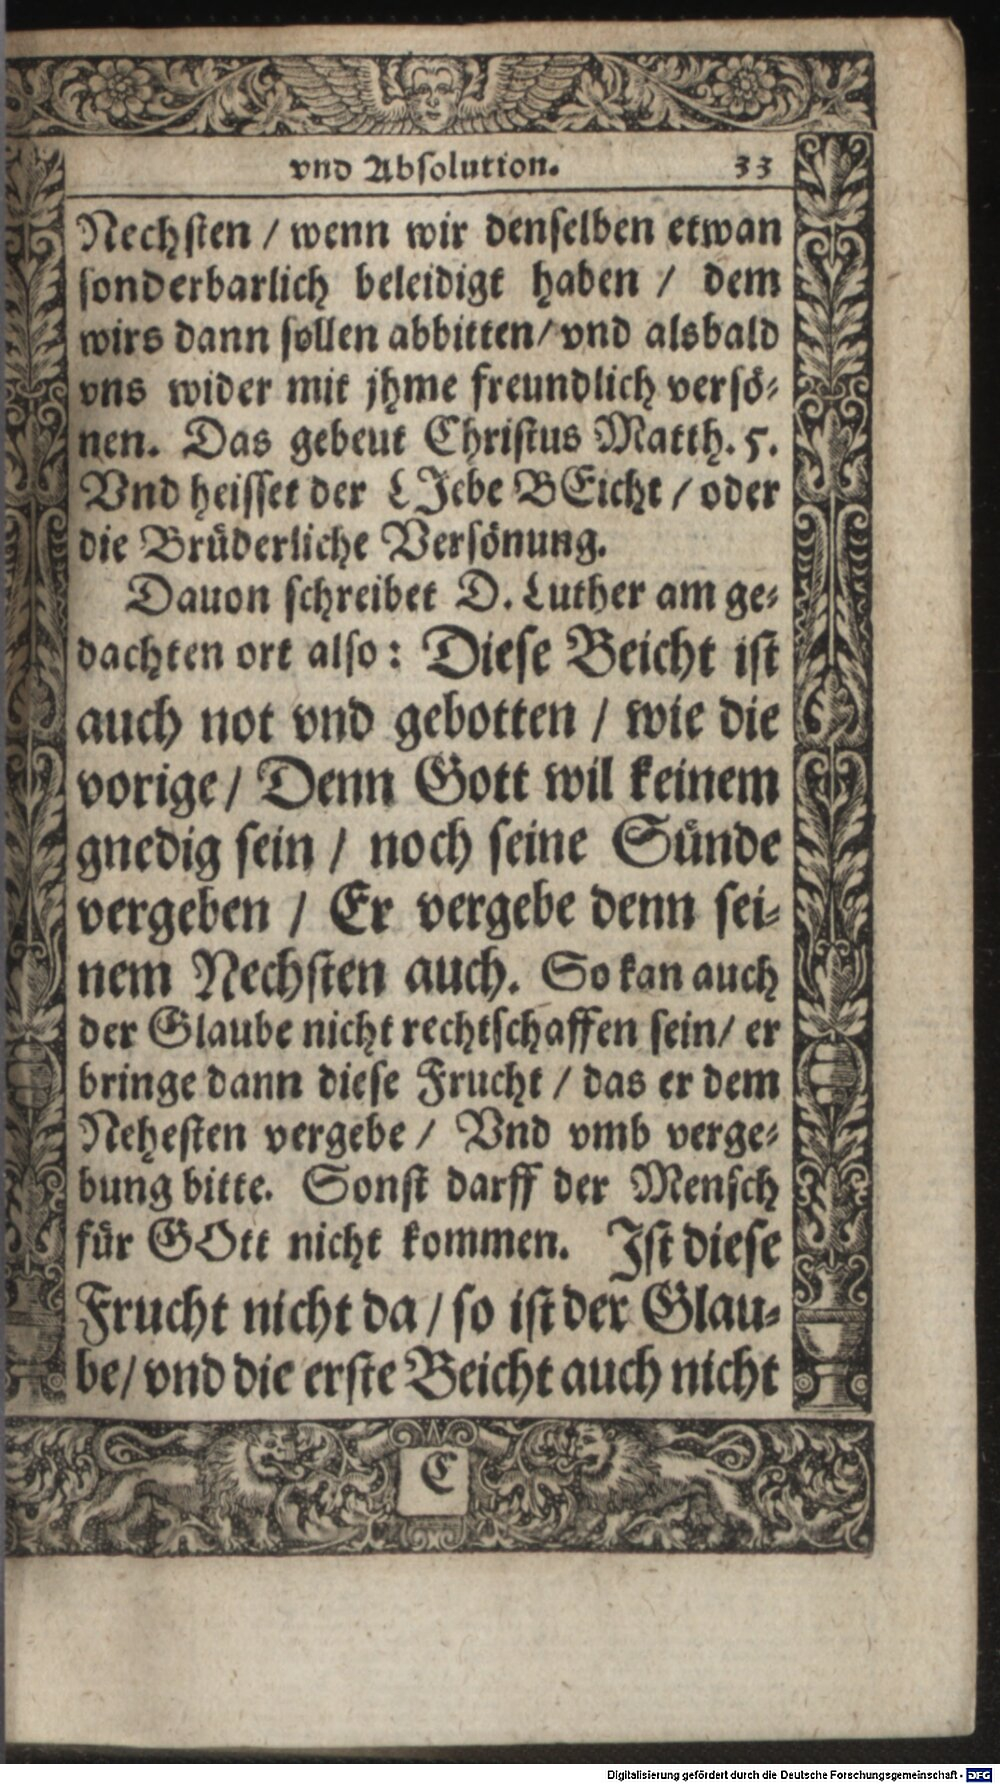 vnd Absolution. 33
Nechsten / wenn wir denselben etwan
sonderbarlich beleidigt haben / dem
wirs dann sollen abbitten/ vnd alsbald
vns wider mit jhme freundlich versö-
nen. Das gebeut Christus Matth. 5.
Vnd heisset der LJebe BEicht / oder
die Brüderliche Versönung.
Dauon schreibet D. Luther am ge-
dachten ort also: Diese Beicht ist
auch not vnd gebotten / wie die
vorige / Denn Gott wil keinem
gnedig sein / noch seine Sünde
vergeben / Er vergebe denn sei-
nem Nechsten auch. So kan auch
der Glaube nicht rechtschaffen sein/ er
bringe dann diese Frucht / das er dem
Nehesten vergebe / Vnd vmb verge-
bung bitte. Sonst darff der Mensch
für GOtt nicht kommen. Ist diese
Frucht nicht da / so ist der Glau-
be/ vnd die erste Beicht auch nicht
C
Digitalisierung gefördert durch die Deutsche Forschungsgemeinschaft - DFG